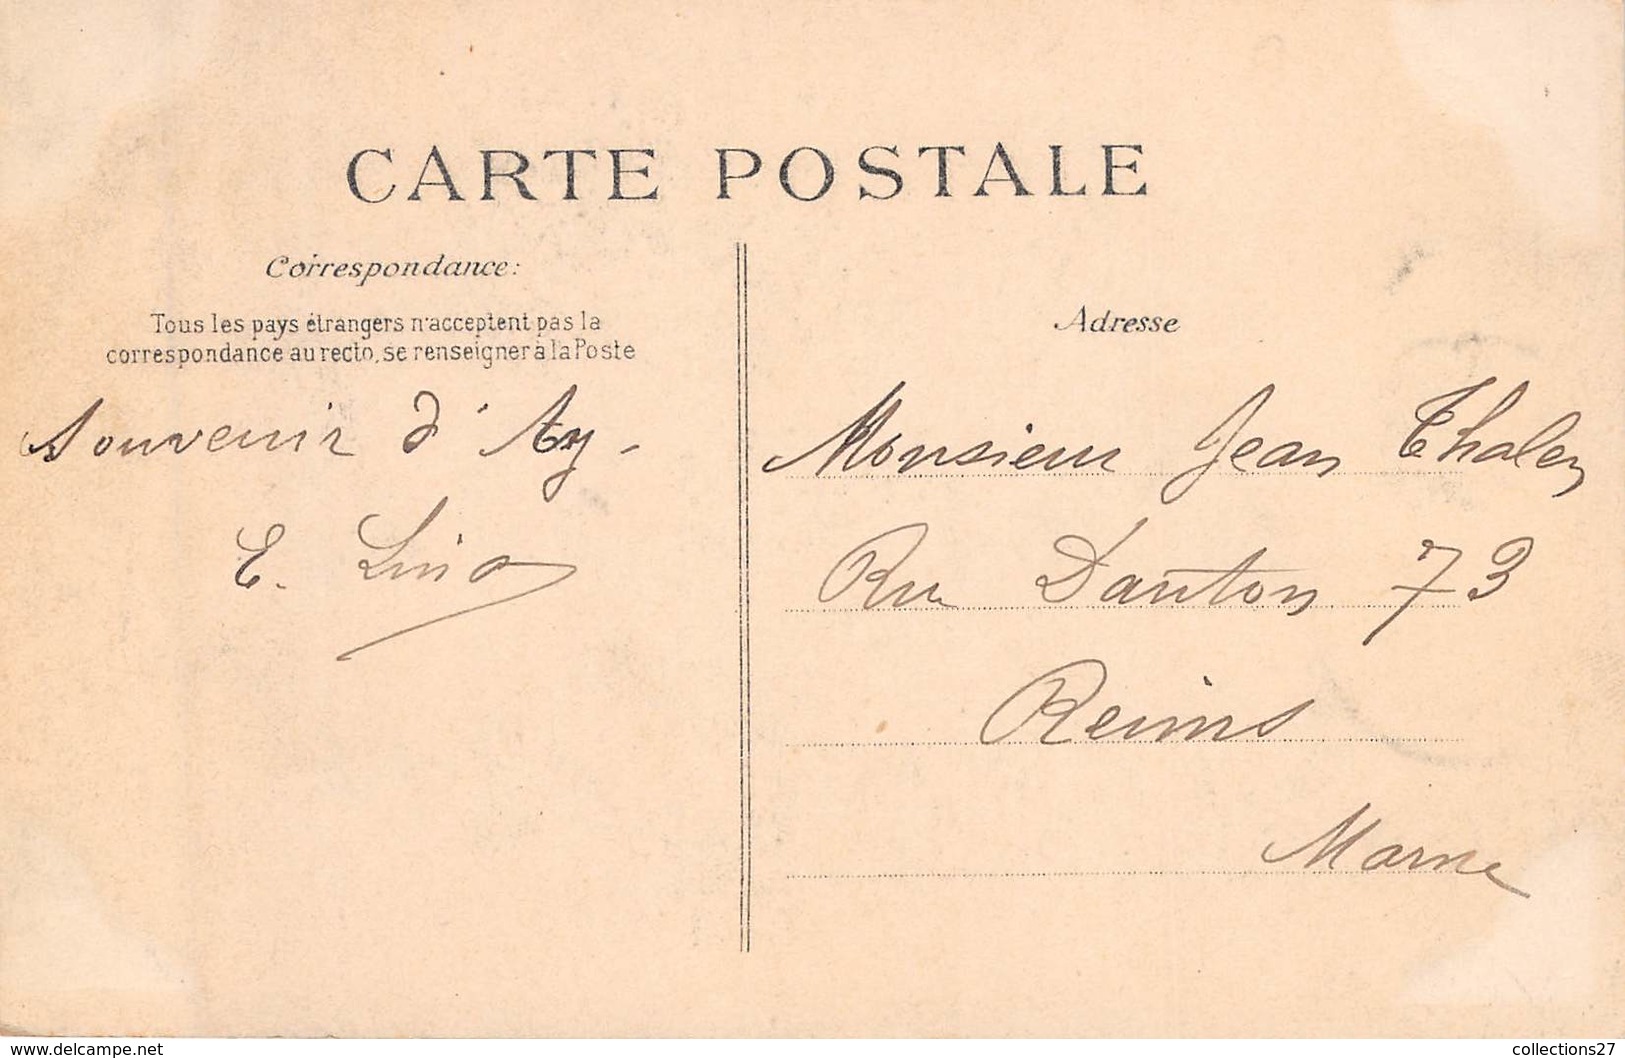 CARTE POSTALE
Correspondance:
Tous les pays étrangers n'acceptent pas la
correspondance au recto, se renseigner à la Poste
Souvenir d'Ay -
E.
Adresse
Monsieur Jean Thalen
Rue Danton 73
Reims
Marne
www.delcampe.net
collections27